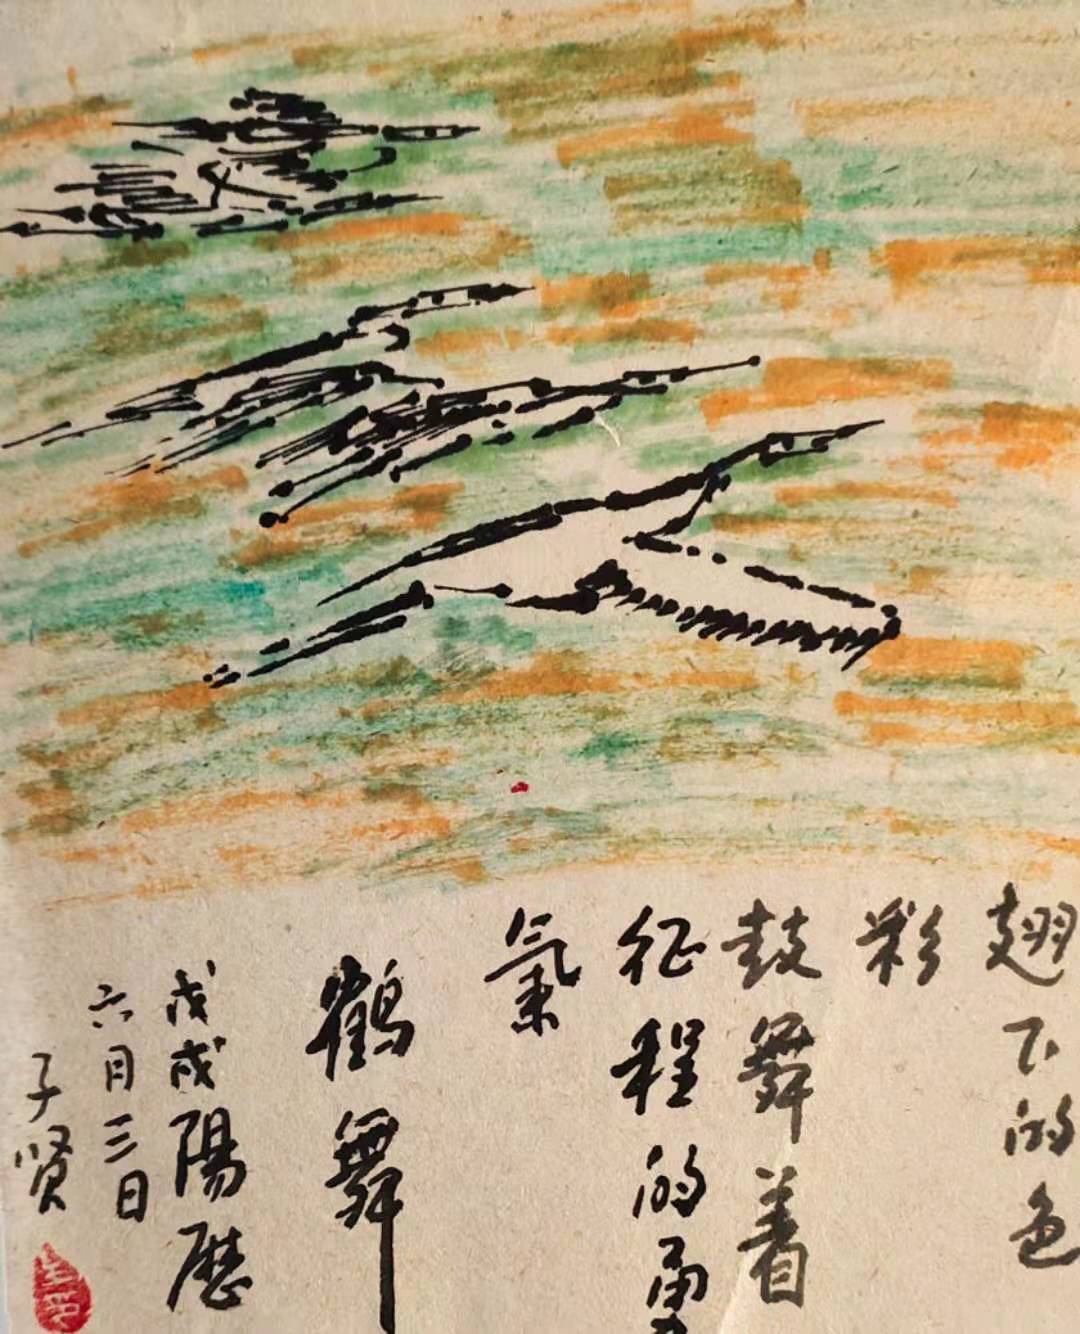 翅下的色
彩
鼓舞着
征程的勇
氣
鶴舞
戊戌陽歷
六月三日
子贤